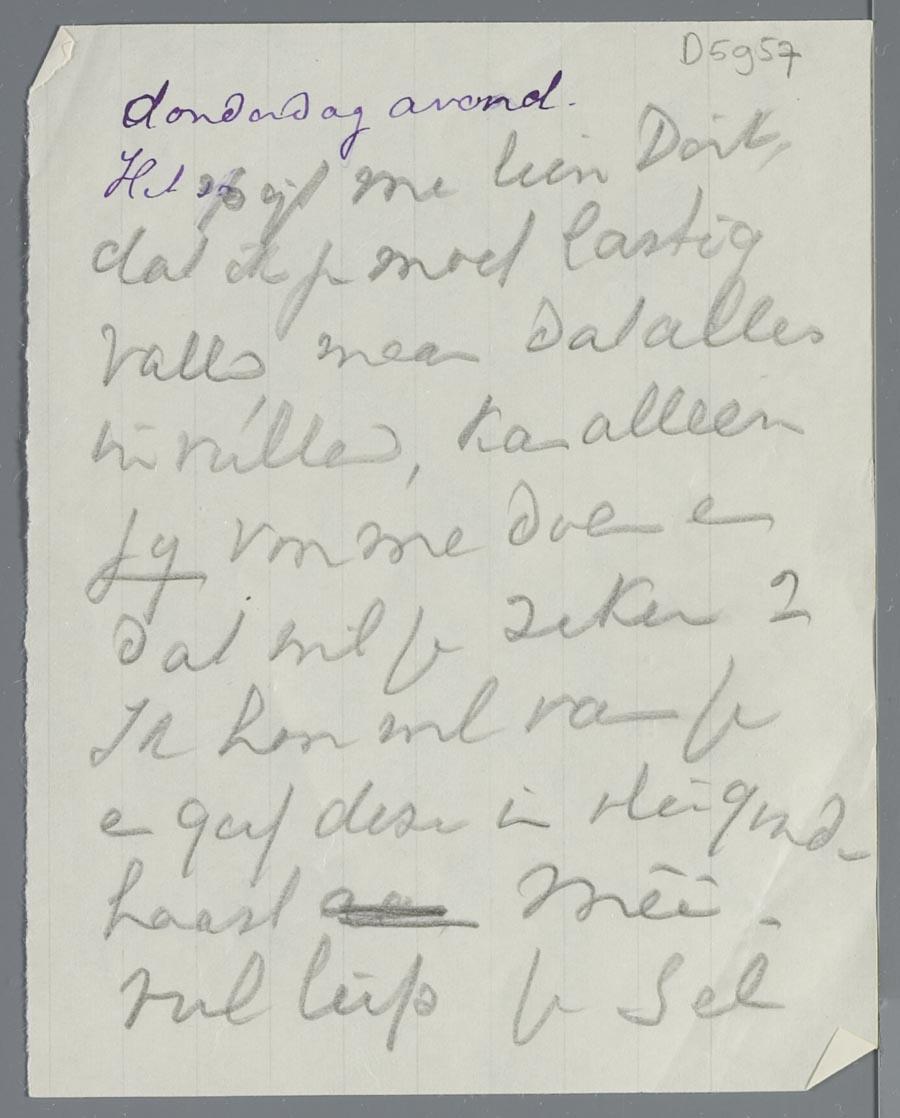 D5957
donderdag avond.
Het spijt me lien Dörk,
dat ik je moet lastig
vallen, maar dat alles
invullen, kan alleen
jij voor me doen en
dat wil je zeker?
Ik hou veel van je
en geef deze in vliegende
haast mêê.
veel liefs je Sel